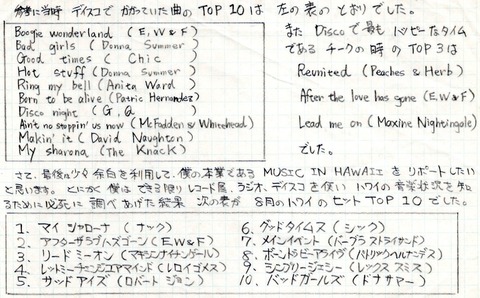 参考に当時 ディスコで かかっていた曲の TOP 10は 左の表の とおりでした。
Boogie wonderland (E,W&F)
Bad girls (Donna Summer)
Good times (Chic)
Hot stuff (Donna Summer)
Ring my bell (Anita Ward)
Born to be alive (Patric Hernandez)
Disco night (G,Q)
Ain't no stoppin' us now (McFadden & Whitehead)
Makin' it (David Naughton)
My sharona (The Knack)
また Discoで最も ハッピーなタイム
である チークの時の TOP 3は
Reunited (Peaches & Herb)
After the love has gone (E,W&F)
Lead me on (Maxine Nightingale)
でした。
さて、最後は少々 余白を利用して、僕の本業である MUSIC IN HAWAII を リポートしたい
と思います。とにかく 僕は できる限り レコード屋、ラジオ、ディスコを使い ハワイの 音楽状況を 知
るために必死に 調べ あげた結果 次の表が 8月のハワイの ヒット TOP 10 でした。
1. マイ シャローナ (ナック)
2. アフターザラブハズゴーン (E,W&F)
3. リードミーオン (マキシンナイチンゲール)
4. レットミーチェンジユアマインド (レロイゴメス)
5. サッドアイズ (ロバート ジョン)
6. グッドタイムス (シック)
7. メインイベント (バーブラ ストライサンド)
8. ボーントゥビーアライヴ (パトリックヘルナンデス)
9. シンプリージェシー (レックス スミス)
10. バッドガールズ (ドナサマー)